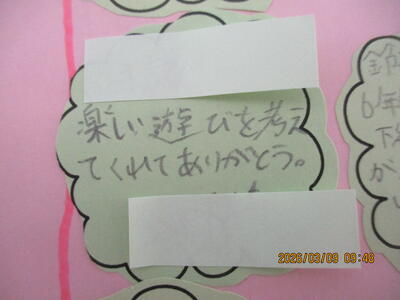 楽しい遊びを考え
てくれてありがとう。
6年
下
が
2026/03/09 09:48